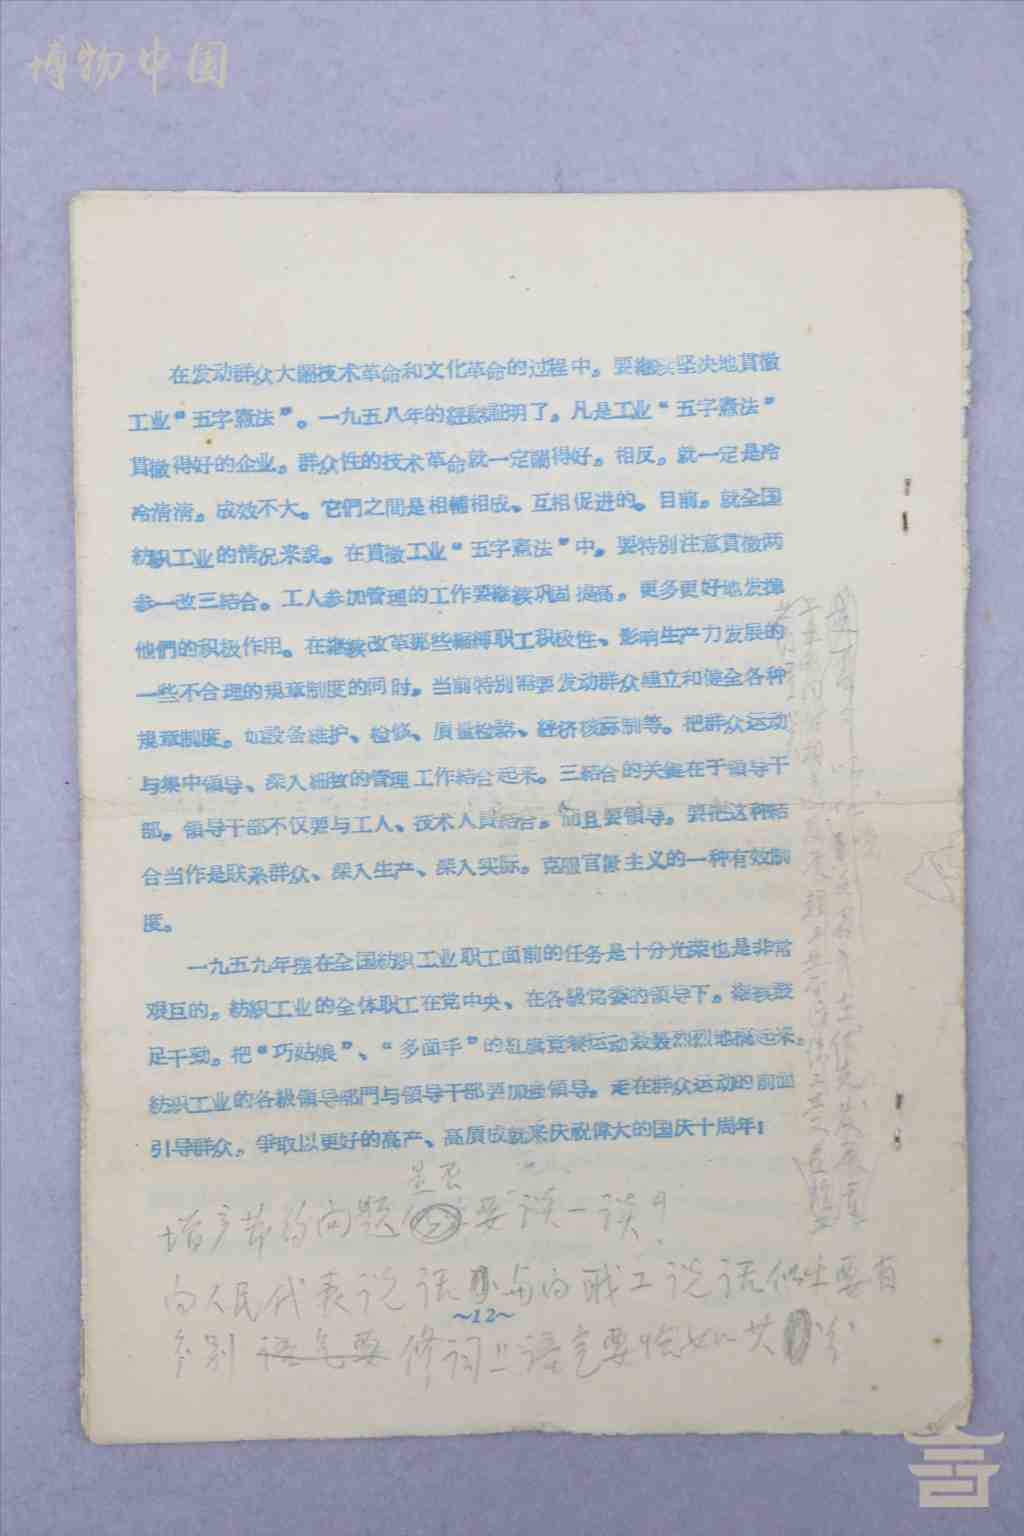 博物中国
在发动群众大闹技术革命和文化革命的过程中。要继续坚决地貫徹
工业“五字憲法”。一九五八年的經驗証明了。凡是工业“五字憲法”
貫徹得好的企业。群众性的技术革命就一定鬧得好。相反。就一定是冷
冷清清。成效不大。它們之間是相輔相成、互相促进的。目前。就全国
紡織工业的情况来說。在貫徹工业“五字憲法”中。要特別注意貫徹两
参一改三結合。工人参加管理的工作要継續巩固提高。更多更好地发揮
他們的积极作用。在継續改革那些束縛职工积极性、影响生产力发展的
一些不合理的規章制度的同时。当前特別需要发动群众建立和健全各种
規章制度。如設备維护、检修、质量检驗、經济核算制等。把群众运动
与集中領导、深入細致的管理工作結合起来。三結合的关鍵在于領导干
部。領导干部不仅要与工人、技术人員結合。而且要領导。要把这种結
合当作是联系群众、深入生产、深入实际。克服官僚主义的一种有效制
度。
一九五九年摆在全国紡织工业职工面前的任务是十分光荣也是非常
艰巨的。紡织工业的全体职工在党中央、在各級党委的領导下。継续鼓
足干劲。把“巧姑娘”、“多面手”的紅旗竞賽运动轰轰烈烈地搞起来。
紡织工业的各級領导部門与領导干部要加強領导。走在群众运动的前面
引导群众。爭取以更好的高产、高质成就来庆祝偉大的国庆十周年！
是否
增产节约问题要谈一谈？
向人民代表说话 与向职工说话似乎要有
~12~
区别 语气要 修词上语气要恰如其分